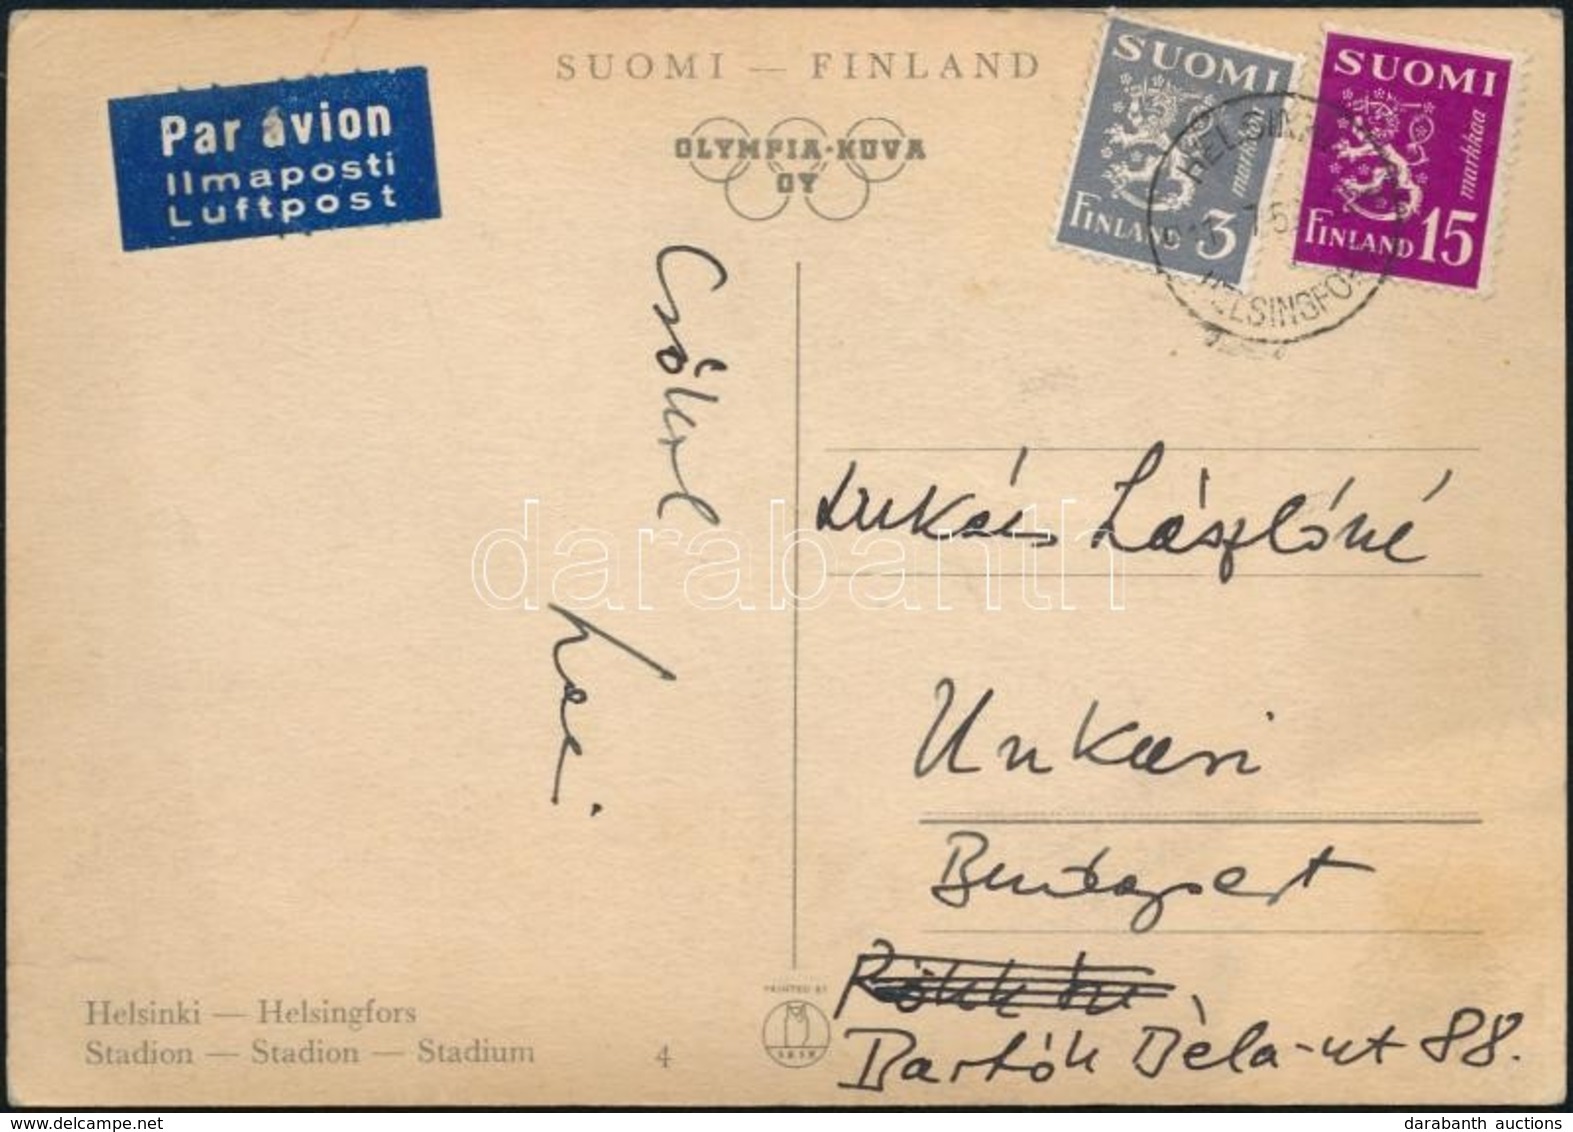 SUOMI — FINLAND
OLYMPIA-KUVA
OY
Par avion
Ilmaposti
Luftpost
SUOMI
markkaa
FINLAND 3
SUOMI
markkaa
FINLAND 15
HELSINKI
HELSINGFORS
Csókol
Lukács Lászlóné
Unkari
Budapest
Bartók Béla-ut 88.
Helsinki — Helsingfors
Stadion — Stadion — Stadium
4
PRINTED BY
darabanth
darabanth auctions